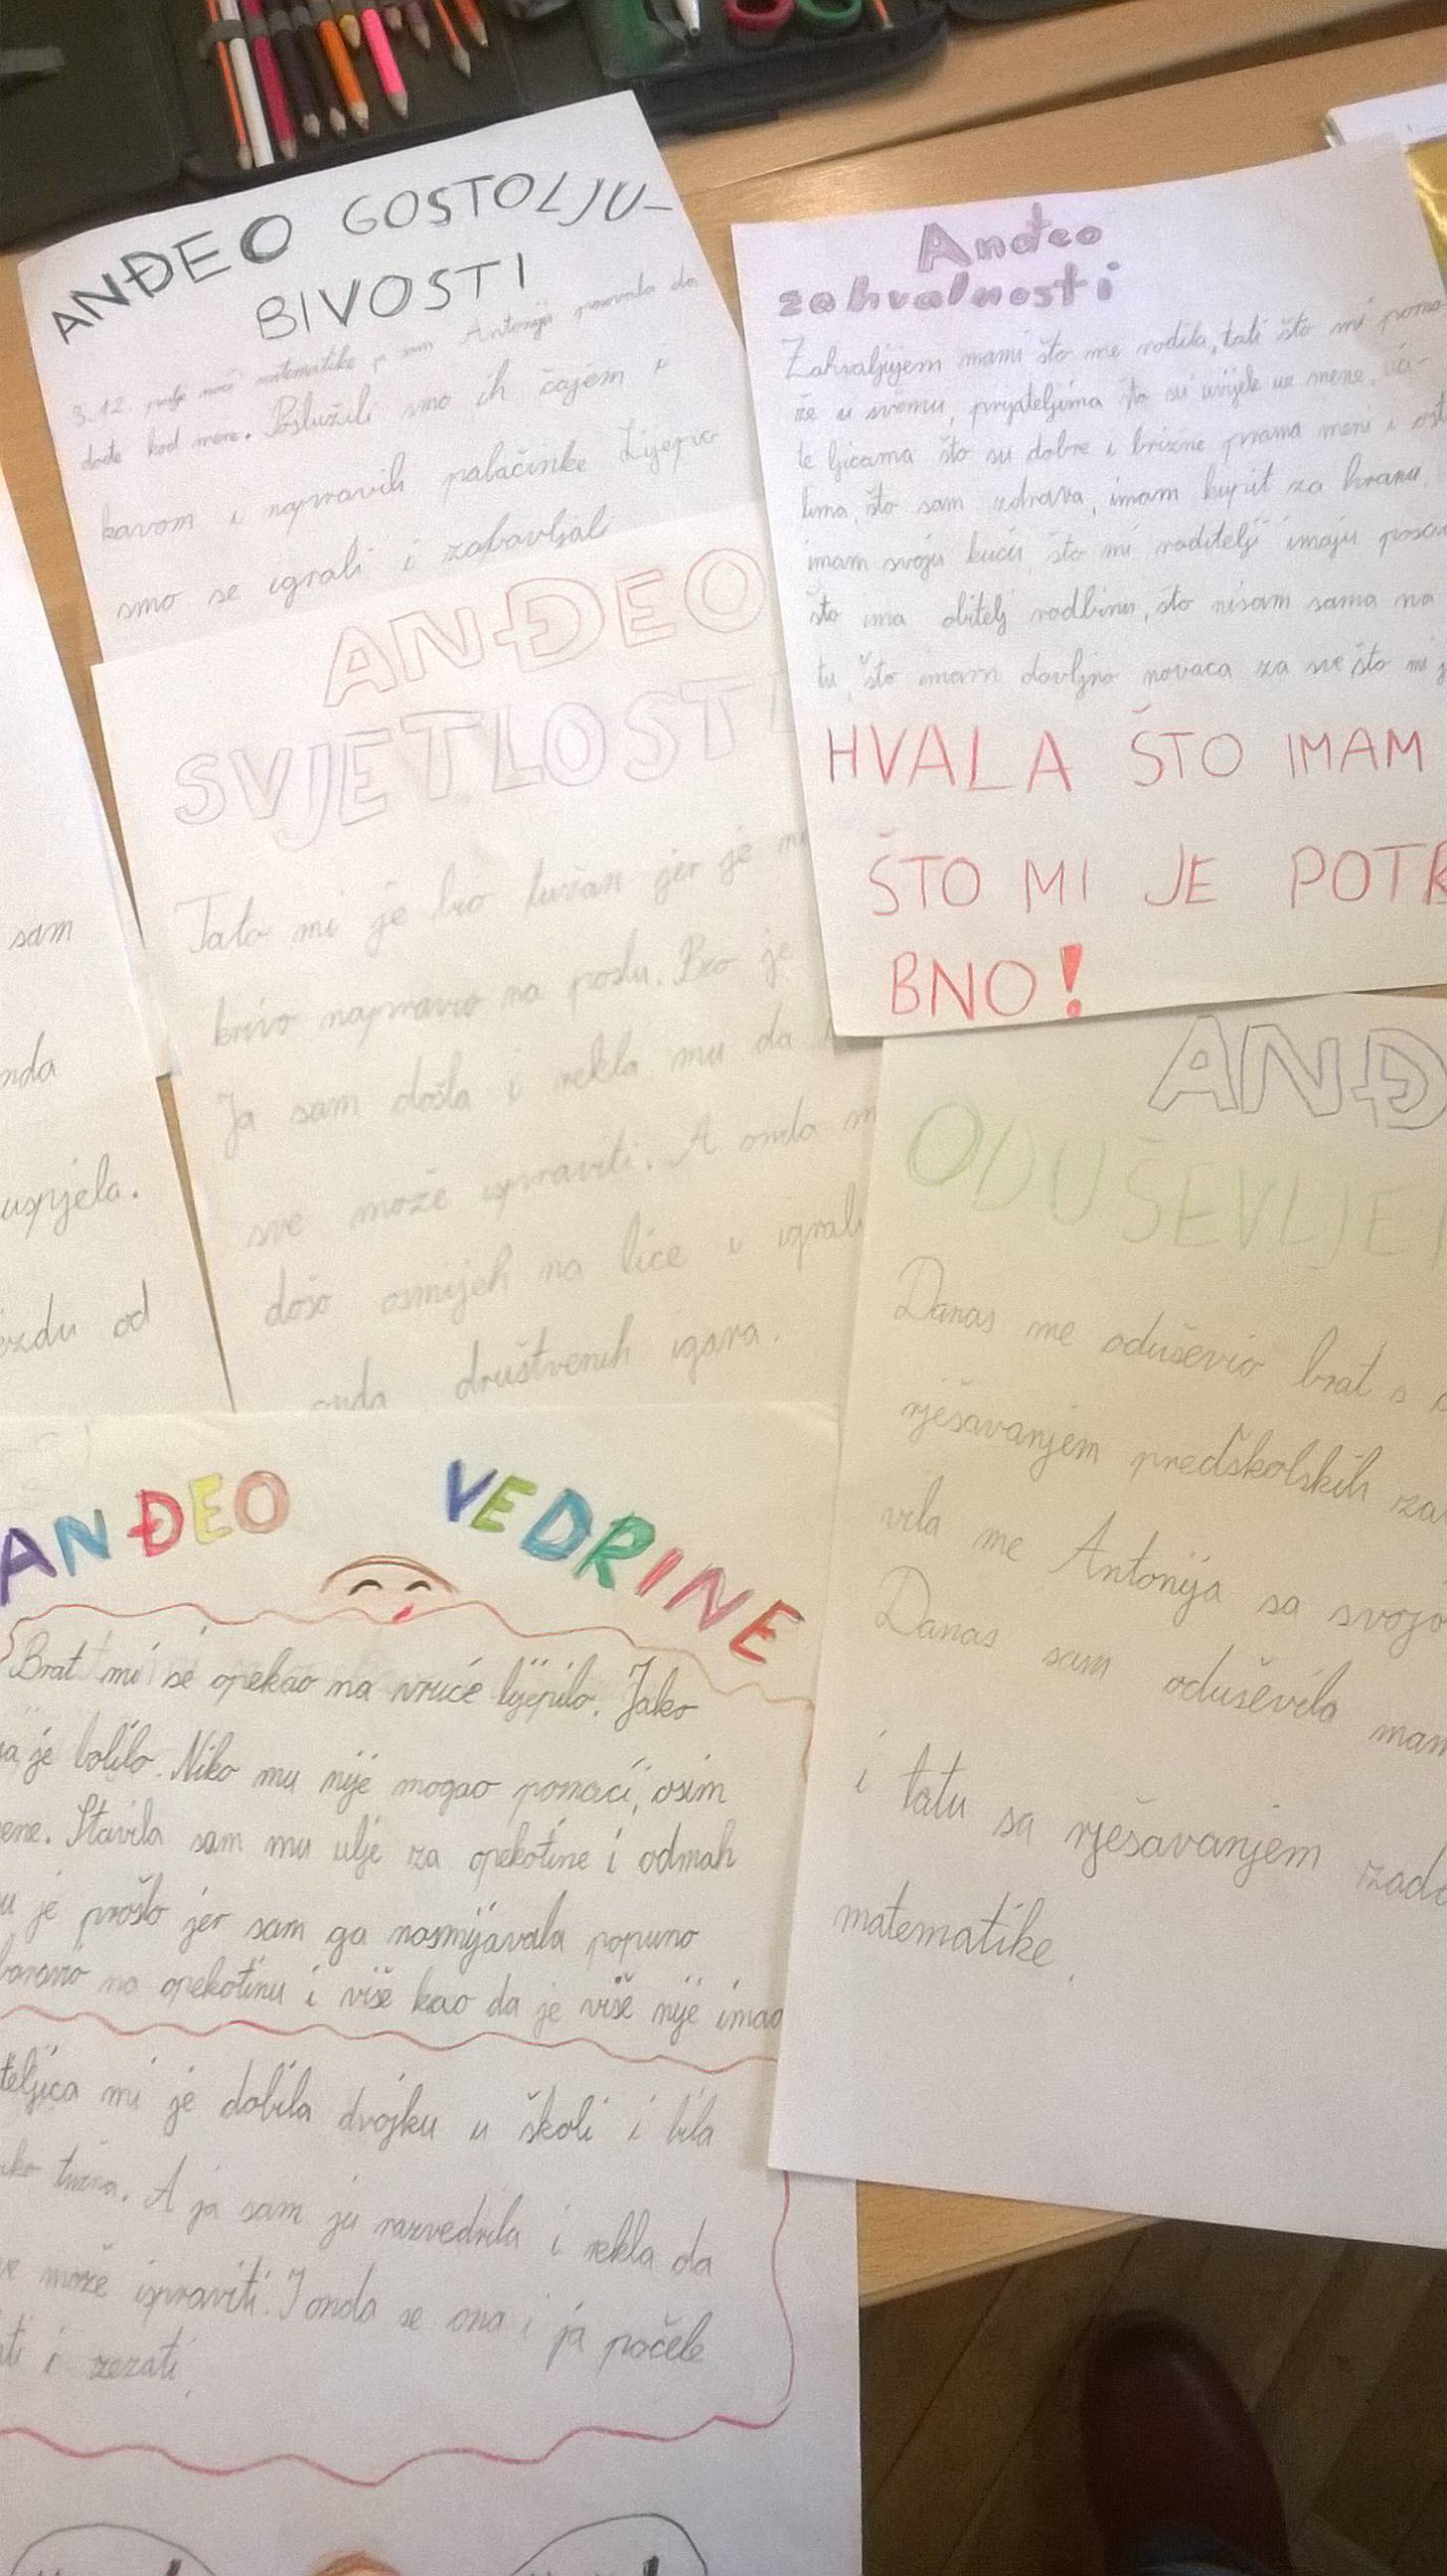 ANĐEO GOSTOLJU-
BIVOSTI
3.12. poslije matematike ja sam Antoniju pozvala da
dođe kod mene. Poslužili smo ih čajem i
kavom i napravili palačinke Lijepo
smo se igrali i zabavljali
Anđeo
zahvalnosti
Zahvaljujem mami što me rodila, tati što mi poma
že u svemu, prijateljima što su uvijek uz mene, uči-
te ljicama što su dobre i brižne prama meni i ost
lima, što sam zdrava, imam kupit za hranu,
imam svoju kuću, što mi roditelji imaju posa
što ima obitelj rodbinu, što nisam sama na
tu, što imam davljno novaca za sve što mi j
HVALA ŠTO IMAM
ŠTO MI JE POTR
BNO!
sam
nda
uspjela.
ezdu od
ANĐEO
SVJETLOSTI
Tata mi je bio tužan jer je
krivo napravio na poslu. Bio je
Ja sam došla i rekla mu da
sve može ispraviti. A onda m
došo osmijeh na lice i igrali
onda društvenih igara.
ANĐ
ODUŠEVLJE
Danas me oduševio brat s
rješavanjem predškolskih za
vila me Antonija sa svojo
Danas sam oduševila mam
i tatu sa rješavanjem zada
matematike.
ANĐEO VEDRINE
Brat mi se opekao na vruće lijepilo. Jako
ga je bolilo. Niko mu nije mogao pomaći, osim
ene. Stavila sam mu ulje za opekotine i odmah
u je prošlo jer sam ga nasmijavala popuno
boravio na opekotinu i više kao da je više nije imao
teljica mi je dobila dvojku u školi i bila
ako tužna. A ja sam ju razvedrila i rekla da
ve može ispraviti. I onda se ona i ja počele
ati i zezati.